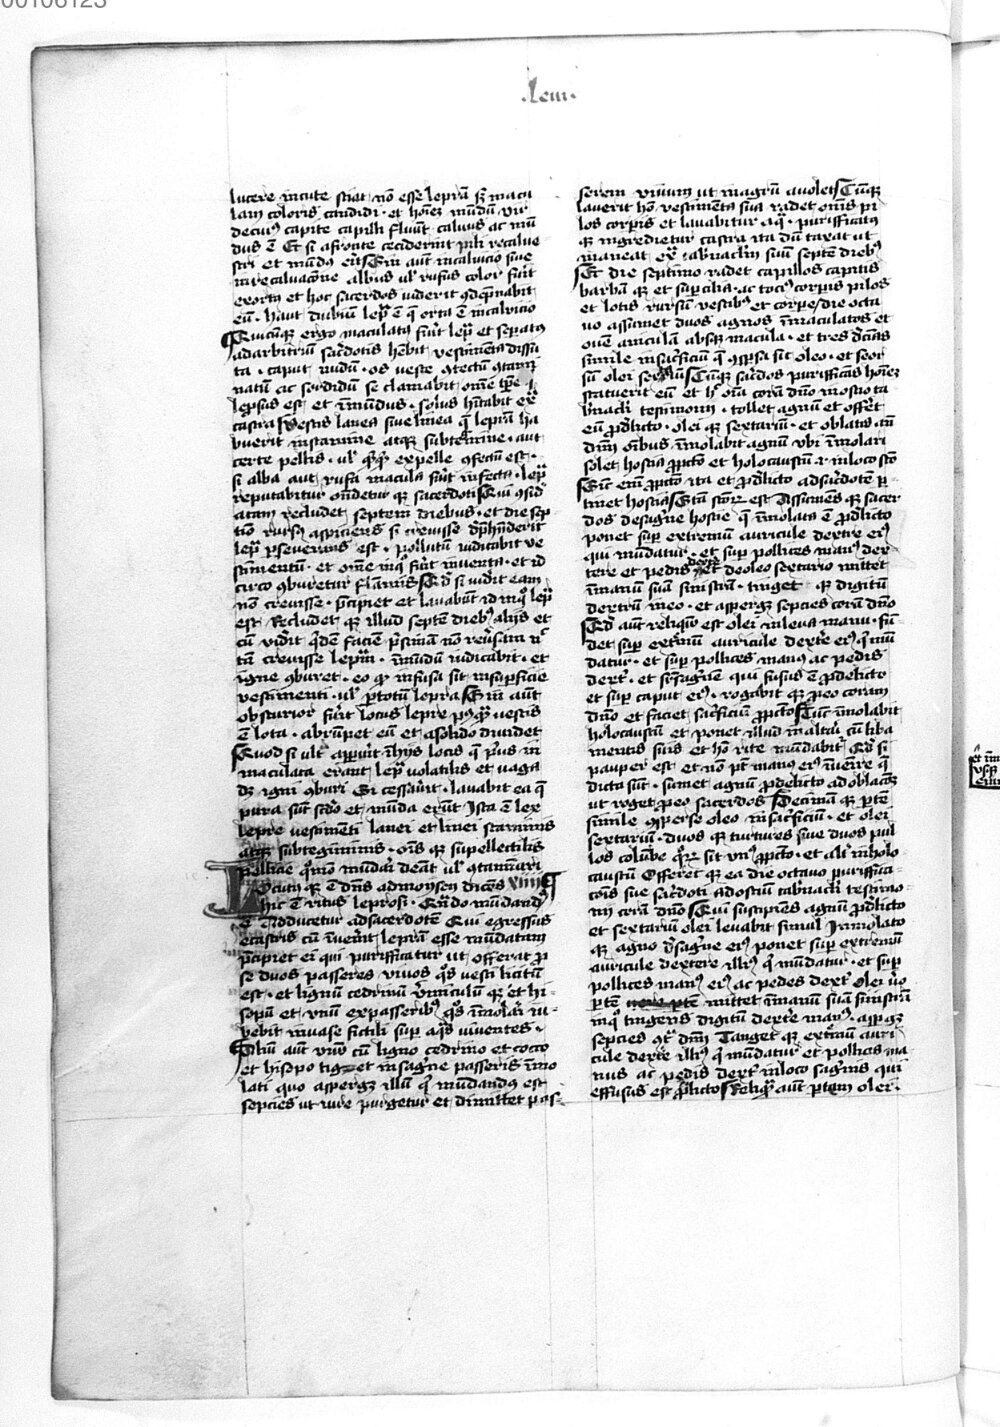 00106123
.Leui.
lucere in cute sciat nō esse leprā sꝫ macu
lam coloris candidi · et hoīez mūdū vir
de cuiꝰ capite capilli fluūt caluus ac mū
dus ē Et si a frōte ceciderint pili recalue
ster et mūdꝰ erit Sin aut in caluicio siue
in recaluacōne albus ul' rufus color fuit
exortꝰ et hoc sacerdos uiderit ꝯdēpnabit
eū · haut dubiūm lepre ē que orta ē in caluicio
Quicūqꝫ ergo maculatꝰ fuit lepra et sepatꝰ
ad arbitriū sacdotis hēbit vestimēta dissu
ta · caput nudū · os veste ꝯtectū ꝯtami
natū ac sordidū se clamabit · omē tꝑe q̄
leprosus est · et īmūdus · solus hitabit ex
castra Vestis lanea siue linea que leprā ha
buerit in stamine atqꝫ subtemine · aut
certe pellis · ul' quicqd ex pelle ꝯfectū est ·
si alba aut rufa macula fuit infecta · lepra
reputabitur ondetur qꝫ sacerdoti Qui ꝯsid
atam recludet septem diebus · et die sep
tīo rursꝰ aspiciens si creuisse dephēderit
lepra ꝑseuerans est · pollutū iudicabit ve
stimentū · et omē in quo fuit inuenta · et id
circo ꝯburetur flāmis Qd si viderit eam
nō creuisse · p̄cipiet et lauabūt id in quo lepra
est Recludet qꝫ illud septē diebꝫ alijs et
cū viderit qdē faciē pristinā nō reuersam nec
tn̄ creuisse leprā · īmūdū iudicabit · et
igne ꝯburet · eo qꝫ infusa sit in superficie
vestimenti · ul' ꝑ totū lepra Sin aut
obscurior fuit locus lepre postqꝫ vestis
ē lota · abrūpet eū et a solido diuidet
Quod si ultra apparuit in hijs locis que prius in
maculata erant · lepra volatilis et vaga
dꝫ igni ꝯburi Si cessauit · lauabit ea que
pura sūt scdo et mūda erūt Ista ē lex
lepre vestimēti lanei et linei staminis
atqꝫ subtegminis · ois qꝫ supellectilis
pellicie quo mundari debeat ul' ꝯtaminari
Locutꝰ qꝫ ē dn̄s ad moysen dicēs xiiij
hic ē ritus leprosi · Quādo mūdandꝰ
ē Adducetur ad sacerdotē Qui egressus
e castris cū inuenit leprā esse mūdatam
p̄cipiet ei qui purificatur ut offerat pro
se duos passeres viuos qos vesci licitū
est · et lignū cedrinū vermiculū qꝫ et hi
sopū et vnū ex passeribꝰ qos īmolari iu
bebit in uase fictili super aqas viuentes ·
Aliū aut viuū cū ligno cedrino et cocco
et hisopo tiget in sagne passeris īmo
lati quo asperget illū qi mūdandus est
sepcies ut iure purgetur et dimittet pas
serem viuum ut in agrū auolet Cūqꝫ
lauerit ho vestimenta sua radet ōmīs pi
los corpis et lauabitur aqua · purificatꝰ
qꝫ ingredietur castra ita dū taxat ut
maneat ex tabernaclm suū septē diebꝰ
Et die septimo radet capillos capitis
barbā qꝫ et supcilia · ac tociꝰ corpis pilos
et lotis rursū vestibꝰ et corpe / die octa
uo assumet duos agnos īmaculatos et
ouē aniculā absqꝫ macula · et tres decias
simile in sacficiū que ꝯspsa sit oleo · et seor
sū olei sextariū Cūqꝫ sacdos purificās hoīez
statuerit eū et hec oīa corā dn̄o in ostio ta
bernacli testimonij · tollet agnū et offeret
eū pro delicto · olei qꝫ sextariū · et oblatis an̄
dn̄m oībus īmolabit agnū vbi īmolari
solet hostia pro pcto et holocaustū · i · in loco sco
Sicut eni pro pcto ita et pro delicto ad sacdotē p
tinet hostia Sctā scorum est Assumēs qꝫ sacer
dos de sagne hostie que īmolata ē pro delicto
ponet sup extremū auricule dextre eiꝰ
qui mūdatur · et sup pollices manꝰ dex
tere et pedis dextri et de oleo sextario mittet
in manū suā sinistrā · tinget qꝫ digitū
dextrū in eo · et asperget sepcies corā dn̄o
Qd aut reliquū est olei in leua manu · fū
det sup extremū auricule dextre eiꝰ q mū
datur · et sup pollices manꝰ ac pedis
dextri · et sup sagnē qui fusus ē pro delicto
et sup caput eiꝰ · rogabit qꝫ pro eo coram
dn̄o et faciet sacficiū pro pcto Tūc īmolabit
holocaustū et ponet illud in altari cū liba
mentis suis et ho rite mūdabitur Qd si
pauper est et nō pt manus eiꝰ inuenire que
dicta sūt · sumet agnū pro delicto ad oblacōez
ut roget pro eo sacerdos Decimā qꝫ ptē
simile ꝯsperse oleo in sacficiū · et olei
sextariū · duos qꝫ turtures siue duos pul
los colūbe quorum sit vnꝰ pro pcto · et altr in holo
caustū Offeret qꝫ ea die octauo purifica
cois sue sacdoti ad ostiū tabnacli testimo
nij corā dn̄o Qui suscipiēs agnū pro delicto
et sextariū olei leuabit simul Immolato
qꝫ agno de sagne eiꝰ ponet sup extremū
auricule dextere illiꝰ q mūdatur · et sup
pollices manꝰ eiꝰ ac pedes dextri Olei uero
ptē mittet in manū suā sinistrā
in quo tingens digitū dextre manꝰ · asperget
sepcies ꝯtra dn̄m Tanget qꝫ extremū auri
cule dextre illiꝰ q mūdatur et pollices ma
nus ac pedis dextri in loco sagnis qui
effusus est pro delicto Reliquā aut ptem olei ·